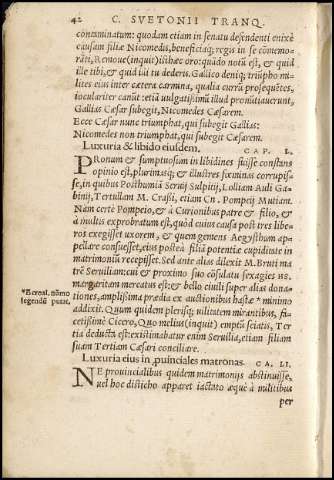 42 C. SVETONII TRANQ.
contaminatum: quodam etiam in senatu defendenti enixè
causam filiæ Nicomedis, beneficiaq; regis in se cōmemo-
rāti, Remoue(inquit)isthæc oro: quādo notū est, & quid
ille tibi, & quid illi tu dederis. Gallico deniq; triūpho mi-
lites eius inter cætera carmina, qualia currū prosequētes,
ioculariter canūt: etiā uulgatissimū illud pronūtiauerunt,
Gallias Cæsar subegit, Nicomedes Cæsarem.
Ecce Cæsar nunc triumphat, qui subegit Gallias:
Nicomedes non triumphat, qui subegit Cæsarem.
Luxuria & libido eiusdem. CAP. L.
PRonum & sumptuosum in libidines fuisse constans
opinio est, plurimasq; & illustres fœminas corrupis-
se, in quibus Posthumiā Seruij Sulpitij, Lolliam Auli Ga-
binij, Tertullam M. Crassi, etiam Cn. Pompeij Mutiam.
Nam certè Pompeio, & à Curionibus patre & filio, &
à multis exprobratum est, quòd cuius causa post tres libe-
ros exegisset uxorem, & quem gemens Aegysthum ap-
pellare consuesset, eius posteà filiā potentiæ cupiditate in
matrimoniū recepisset. Sed ante alias dilexit M. Bruti ma
trē Seruiliam: cui & proximo suo cōsulatu sexagies HS.
margaritam mercatus est: & bello ciuili super alias dona-
tiones, amplissima prædia ex auctionibus hastæ * minino
addixit. Quum quidem plerisq; uilitatem mirantibus, fa-
cetissimè Cicero, Quo melius(inquit) emptū sciatis, Ter
tia deducta est: existimabatur enim Seruilia, etiam filiam
suam Tertiam Cæsari conciliare.
*Bcroal. nūmo
legendū putat.
Luxuria eius in ꝓuinciales matronas. CA. LI.
NE prouincialibus quidem matrimonijs abstinuisse,
uel hoc disticho apparet iactato æquè à militibus
per